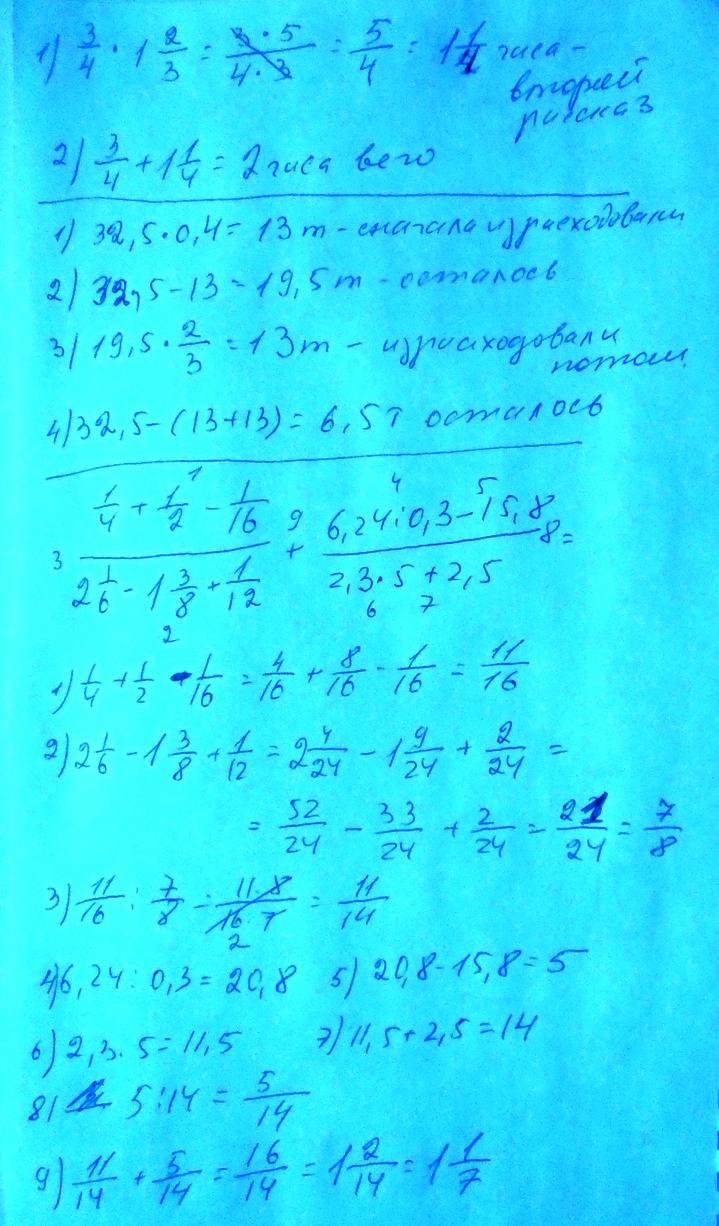 1) 3/4 · 1 2/3 = 3·5/4·3 = 5/4 = 1 1/4 часа -
второй
рассказ
2) 3/4 + 1 1/4 = 2 часа всего
1) 32,5·0,4 = 13 т - сначала израсходовали
2) 32,5 - 13 = 19,5 т - осталось
3) 19,5 · 2/3 = 13 т - израсходовали
потом
4) 32,5 - (13+13) = 6,5 т осталось
1 4 5
1/4 + 1/2 - 1/16 9 6,24:0,3 - 15,8
3 + 8 =
2 1/6 - 1 3/8 + 1/12 2,3·5 + 2,5
2 6 7
1) 1/4 + 1/2 - 1/16 = 4/16 + 8/16 - 1/16 = 11/16
2) 2 1/6 - 1 3/8 + 1/12 = 2 4/24 - 1 9/24 + 2/24 =
= 52/24 - 33/24 + 2/24 = 21/24 = 7/8
3) 11/16 : 7/8 = 11·8/16·7 = 11/14
2
4) 6,24 : 0,3 = 20,8 5) 20,8 - 15,8 = 5
6) 2,3·5 = 11,5 7) 11,5 + 2,5 = 14
8) 5:14 = 5/14
9) 11/14 + 5/14 = 16/14 = 1 2/14 = 1 1/7